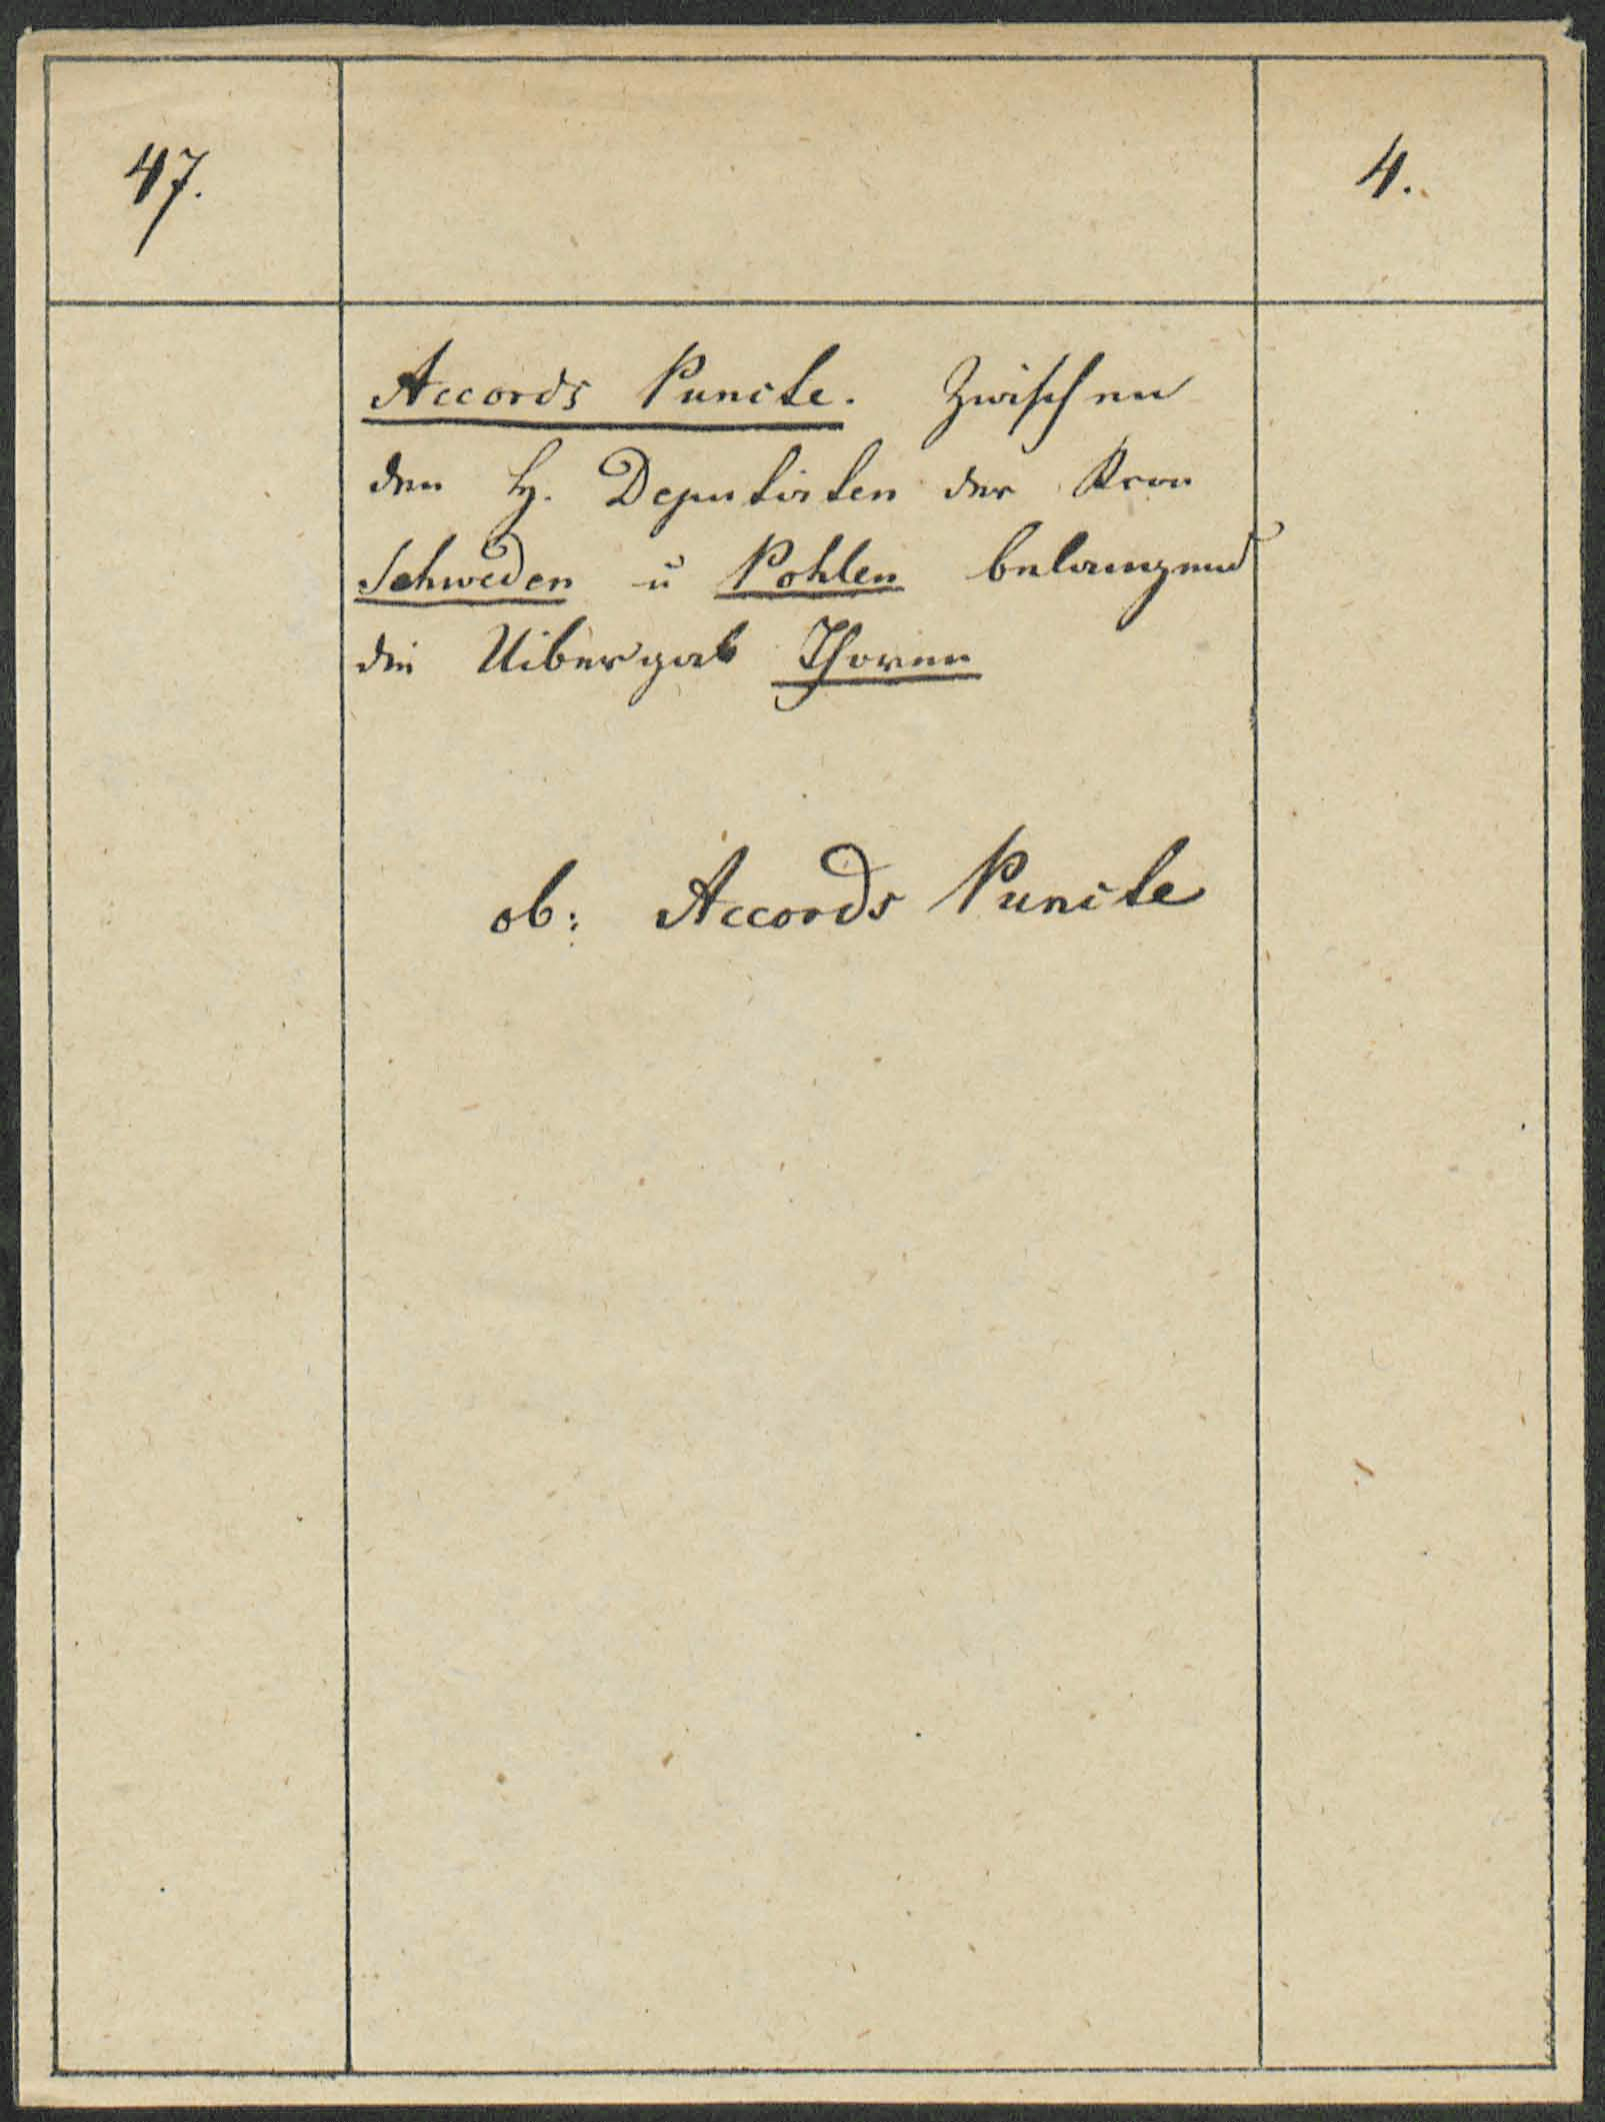 47.
4.
Accords Puncte. Zwischen
den H. Deputirten der Kron
Schweden u Pohlen belangend
die Uibergab Thoren
ob: Accords Puncte